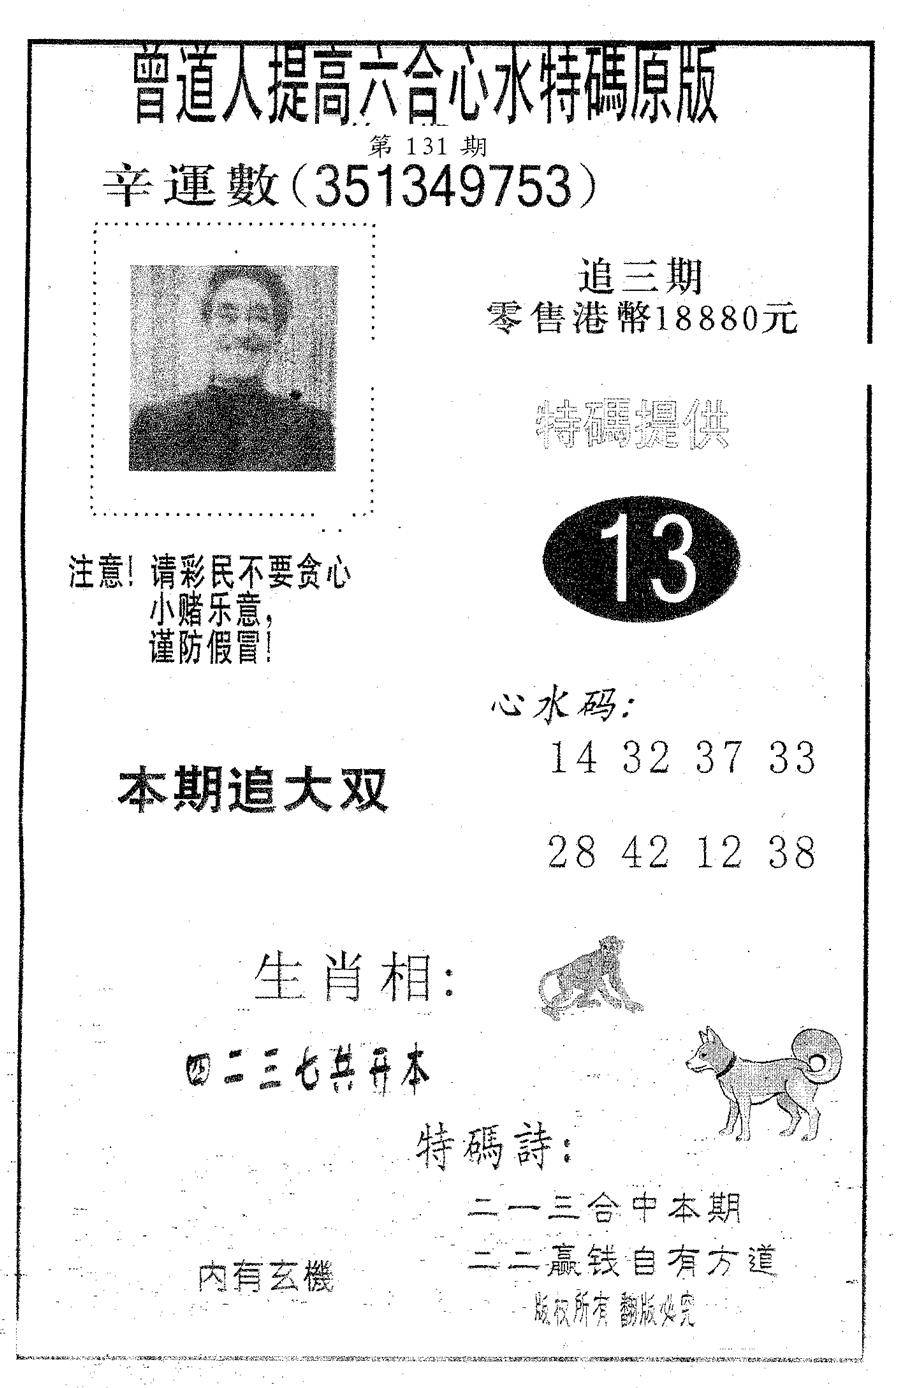 曾道人提高六合心水特碼原版
第 131 期
辛運數(351349753)
追三期
零售港幣18880元
特碼提供
13
注意! 请彩民不要贪心
小赌乐意,
谨防假冒!
心水码:
14 32 37 33
本期追大双
28 42 12 38
生肖相:
四二三七共开本
特碼詩:
二一三合中本期
二二赢钱自有方道
内有玄機
版权所有 翻版必究